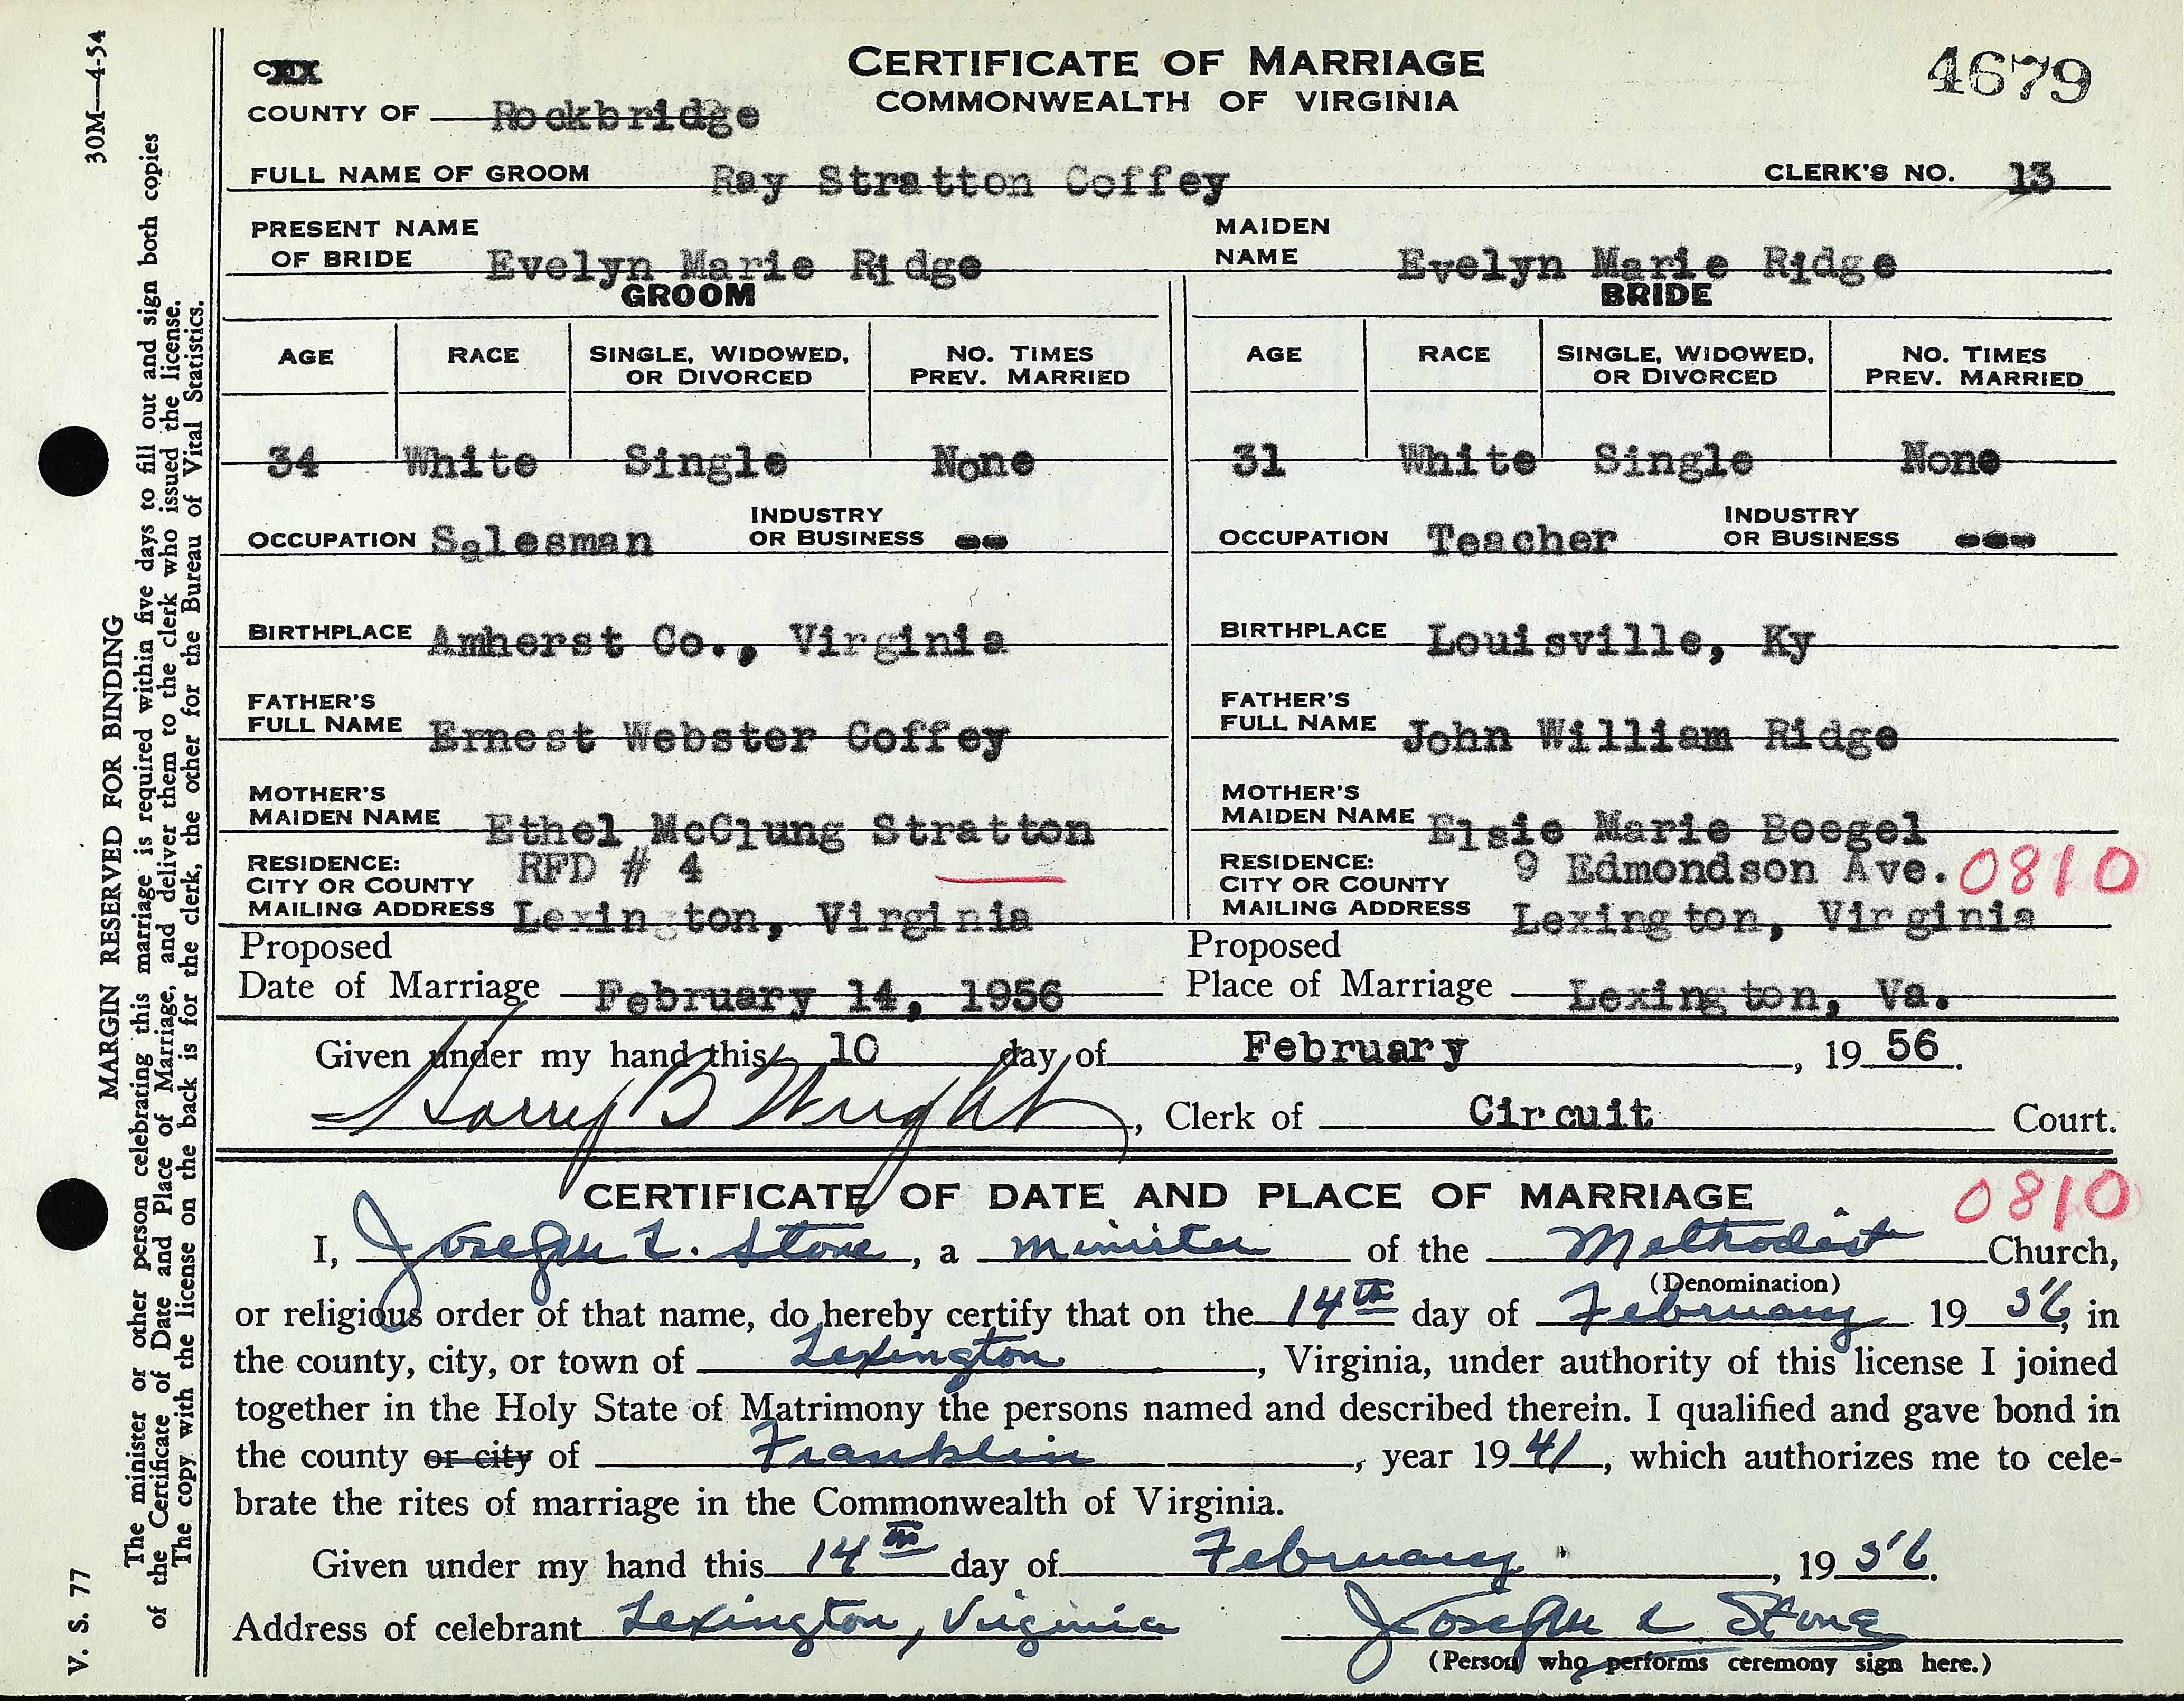 30M—4-54
CERTIFICATE OF MARRIAGE
COMMONWEALTH OF VIRGINIA
4679
COUNTY OF Rockbridge
FULL NAME OF GROOM Ray Stratton Coffey CLERK'S NO. 13
PRESENT NAME OF BRIDE Evelyn Marie Ridge MAIDEN NAME Evelyn Marie Ridge
GROOM BRIDE
AGE RACE SINGLE, WIDOWED, OR DIVORCED NO. TIMES PREV. MARRIED AGE RACE SINGLE, WIDOWED, OR DIVORCED NO. TIMES PREV. MARRIED
34 White Single None 31 White Single None
OCCUPATION Salesman INDUSTRY OR BUSINESS -- OCCUPATION Teacher INDUSTRY OR BUSINESS ---
BIRTHPLACE Amherst Co., Virginia BIRTHPLACE Louisville, Ky
FATHER'S FULL NAME Ernest Webster Coffey FATHER'S FULL NAME John William Ridge
MOTHER'S MAIDEN NAME Ethel McClung Stratton MOTHER'S MAIDEN NAME Elsie Marie Boegel
RESIDENCE: CITY OR COUNTY MAILING ADDRESS RFD # 4 Lexington, Virginia RESIDENCE: CITY OR COUNTY MAILING ADDRESS 9 Edmondson Ave. 0810 Lexington, Virginia
Proposed Date of Marriage February 14, 1956 Proposed Place of Marriage Lexington, Va.
Given under my hand this 10 day of February, 19 56.
Harry B Wright, Clerk of Circuit Court.
CERTIFICATE OF DATE AND PLACE OF MARRIAGE 0810
I, Joseph L. Stone, a minister of the Methodist Church,
(Denomination)
or religious order of that name, do hereby certify that on the 14th day of February 19 56, in
the county, city, or town of Lexington, Virginia, under authority of this license I joined
together in the Holy State of Matrimony the persons named and described therein. I qualified and gave bond in
the county or city of Franklin, year 19 41, which authorizes me to cele-
brate the rites of marriage in the Commonwealth of Virginia.
Given under my hand this 14th day of February, 19 56.
Address of celebrant Lexington, Virginia Joseph L Stone
(Person who performs ceremony sign here.)
V. S. 77
MARGIN RESERVED FOR BINDING
The minister or other person celebrating this marriage is required within five days to fill out and sign both copies
of the Certificate of Date and Place of Marriage, and deliver them to the clerk who issued the license.
The copy with the license on the back is for the clerk, the other for the Bureau of Vital Statistics.